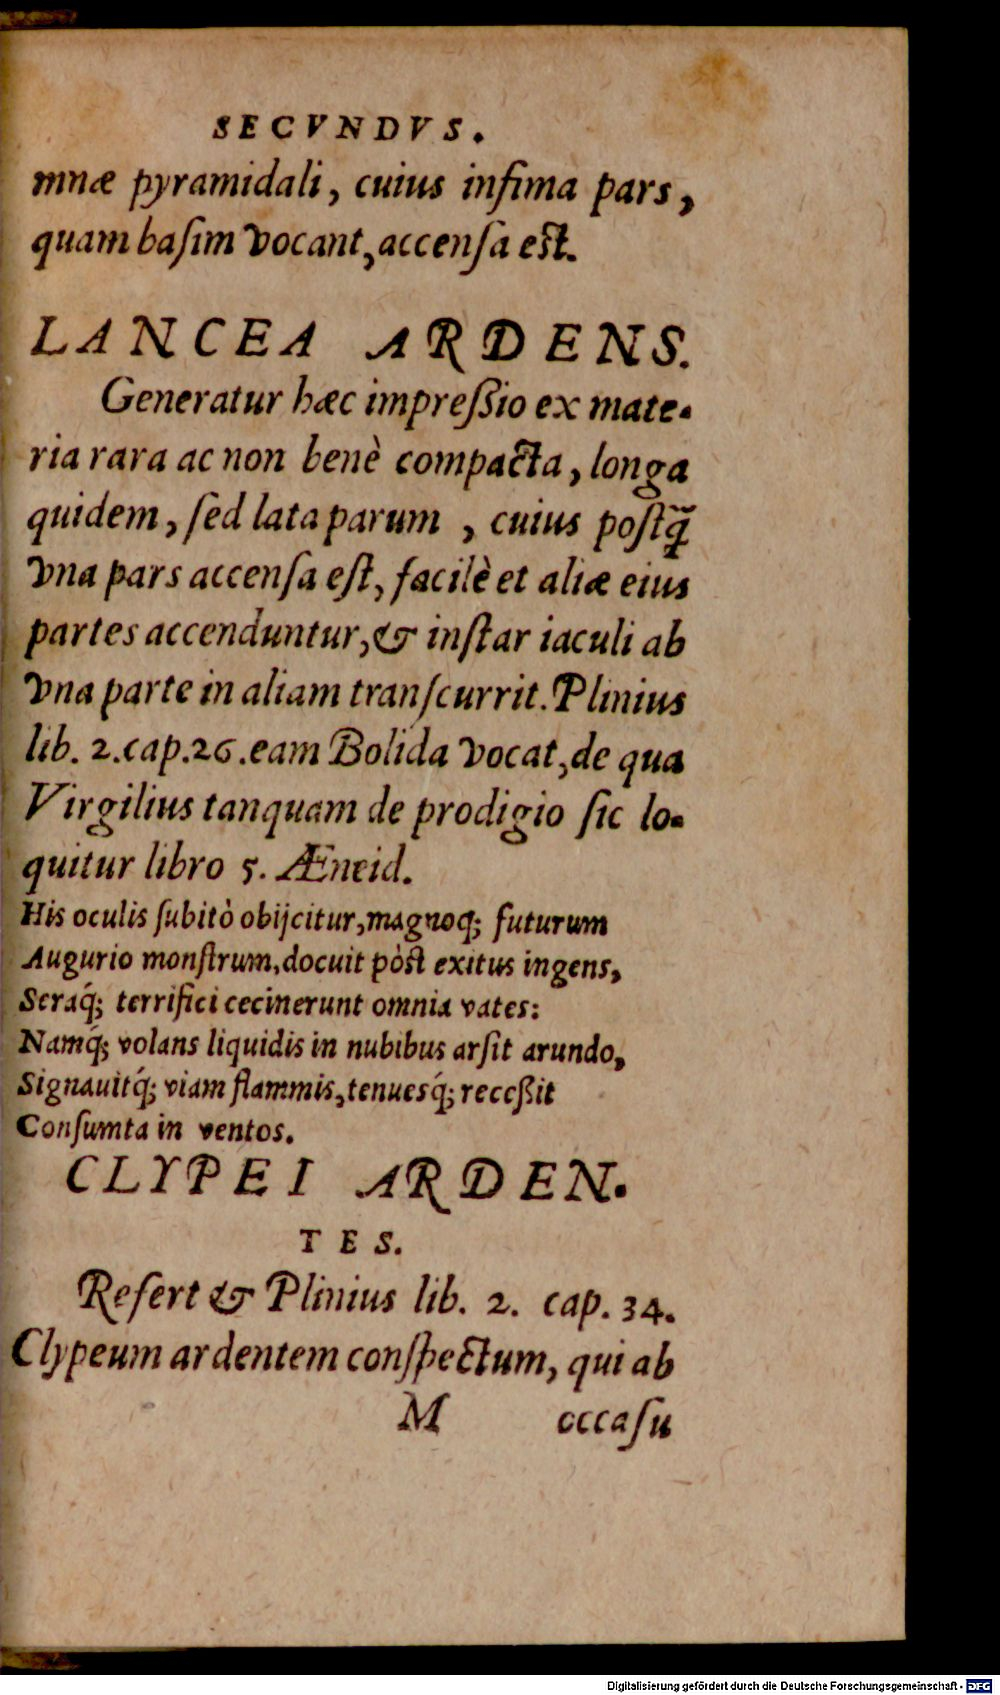 SECVNDVS.
mnæ pyramidali, cuius infima pars,
quam baſim vocant, accenſa eſt.
LANCEA ARDENS.
Generatur hæc impreßio ex mate-
ria rara ac non benè compacta, longa
quidem, ſed lata parum , cuius poſtq̃
vna pars accenſa eſt, facilè et aliæ eius
partes accenduntur, & inſtar iaculi ab
vna parte in aliam tranſcurrit. Plinius
lib. 2. cap. 26. eam Bolida vocat, de qua
Virgilius tanquam de prodigio ſic lo-
quitur libro 5. Æneid.
His oculis ſubitò obijcitur, magnoq; futurum
Augurio monſtrum, docuit pòſt exitus ingens,
Seraq́; terrifici cecinerunt omnia vates:
Namq́; volans liquidis in nubibus arſit arundo,
Signauitq́; viam flammis, tenuesq́; receßit
Conſumta in ventos.
CLYPEI ARDEN-
TES.
Refert & Plinius lib. 2. cap. 34.
Clypeum ardentem conſpectum, qui ab
M occaſu
Digitalisierung gefördert durch die Deutsche Forschungsgemeinschaft - DFG